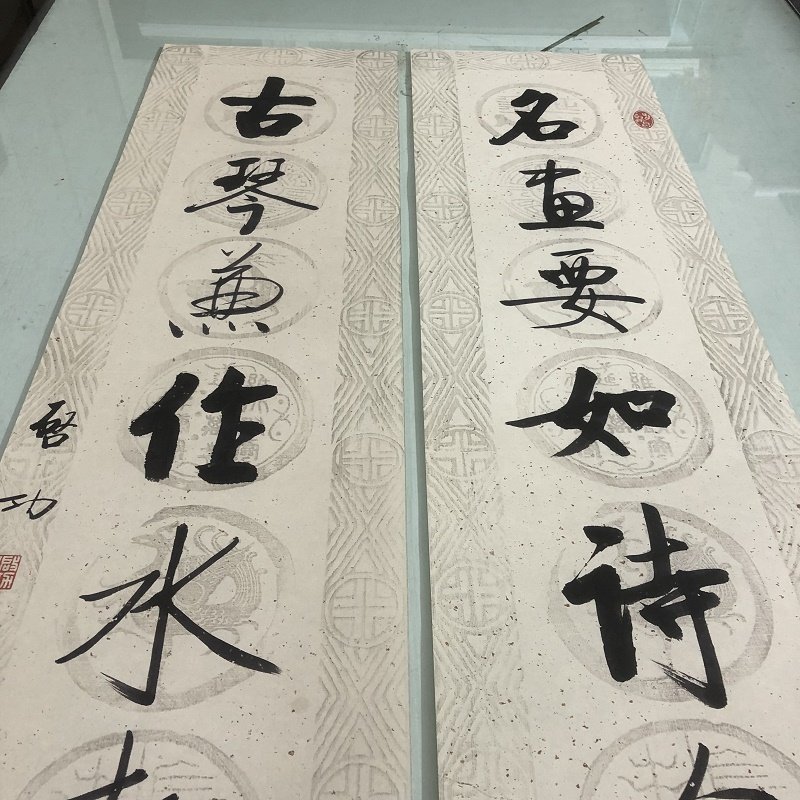 名畫要如诗
古琴兼作水
啓功